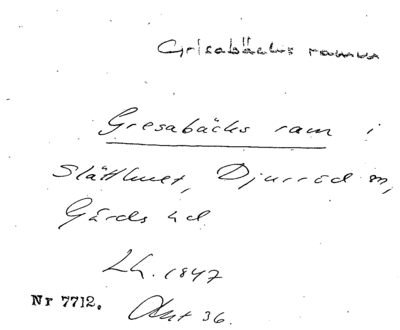 Grisabäcks ramm
Gresabäcks ram i
Slätthult, Djurröd sn,
Gärds hd
Lh. 1847
Nr 7712. Akt 36.